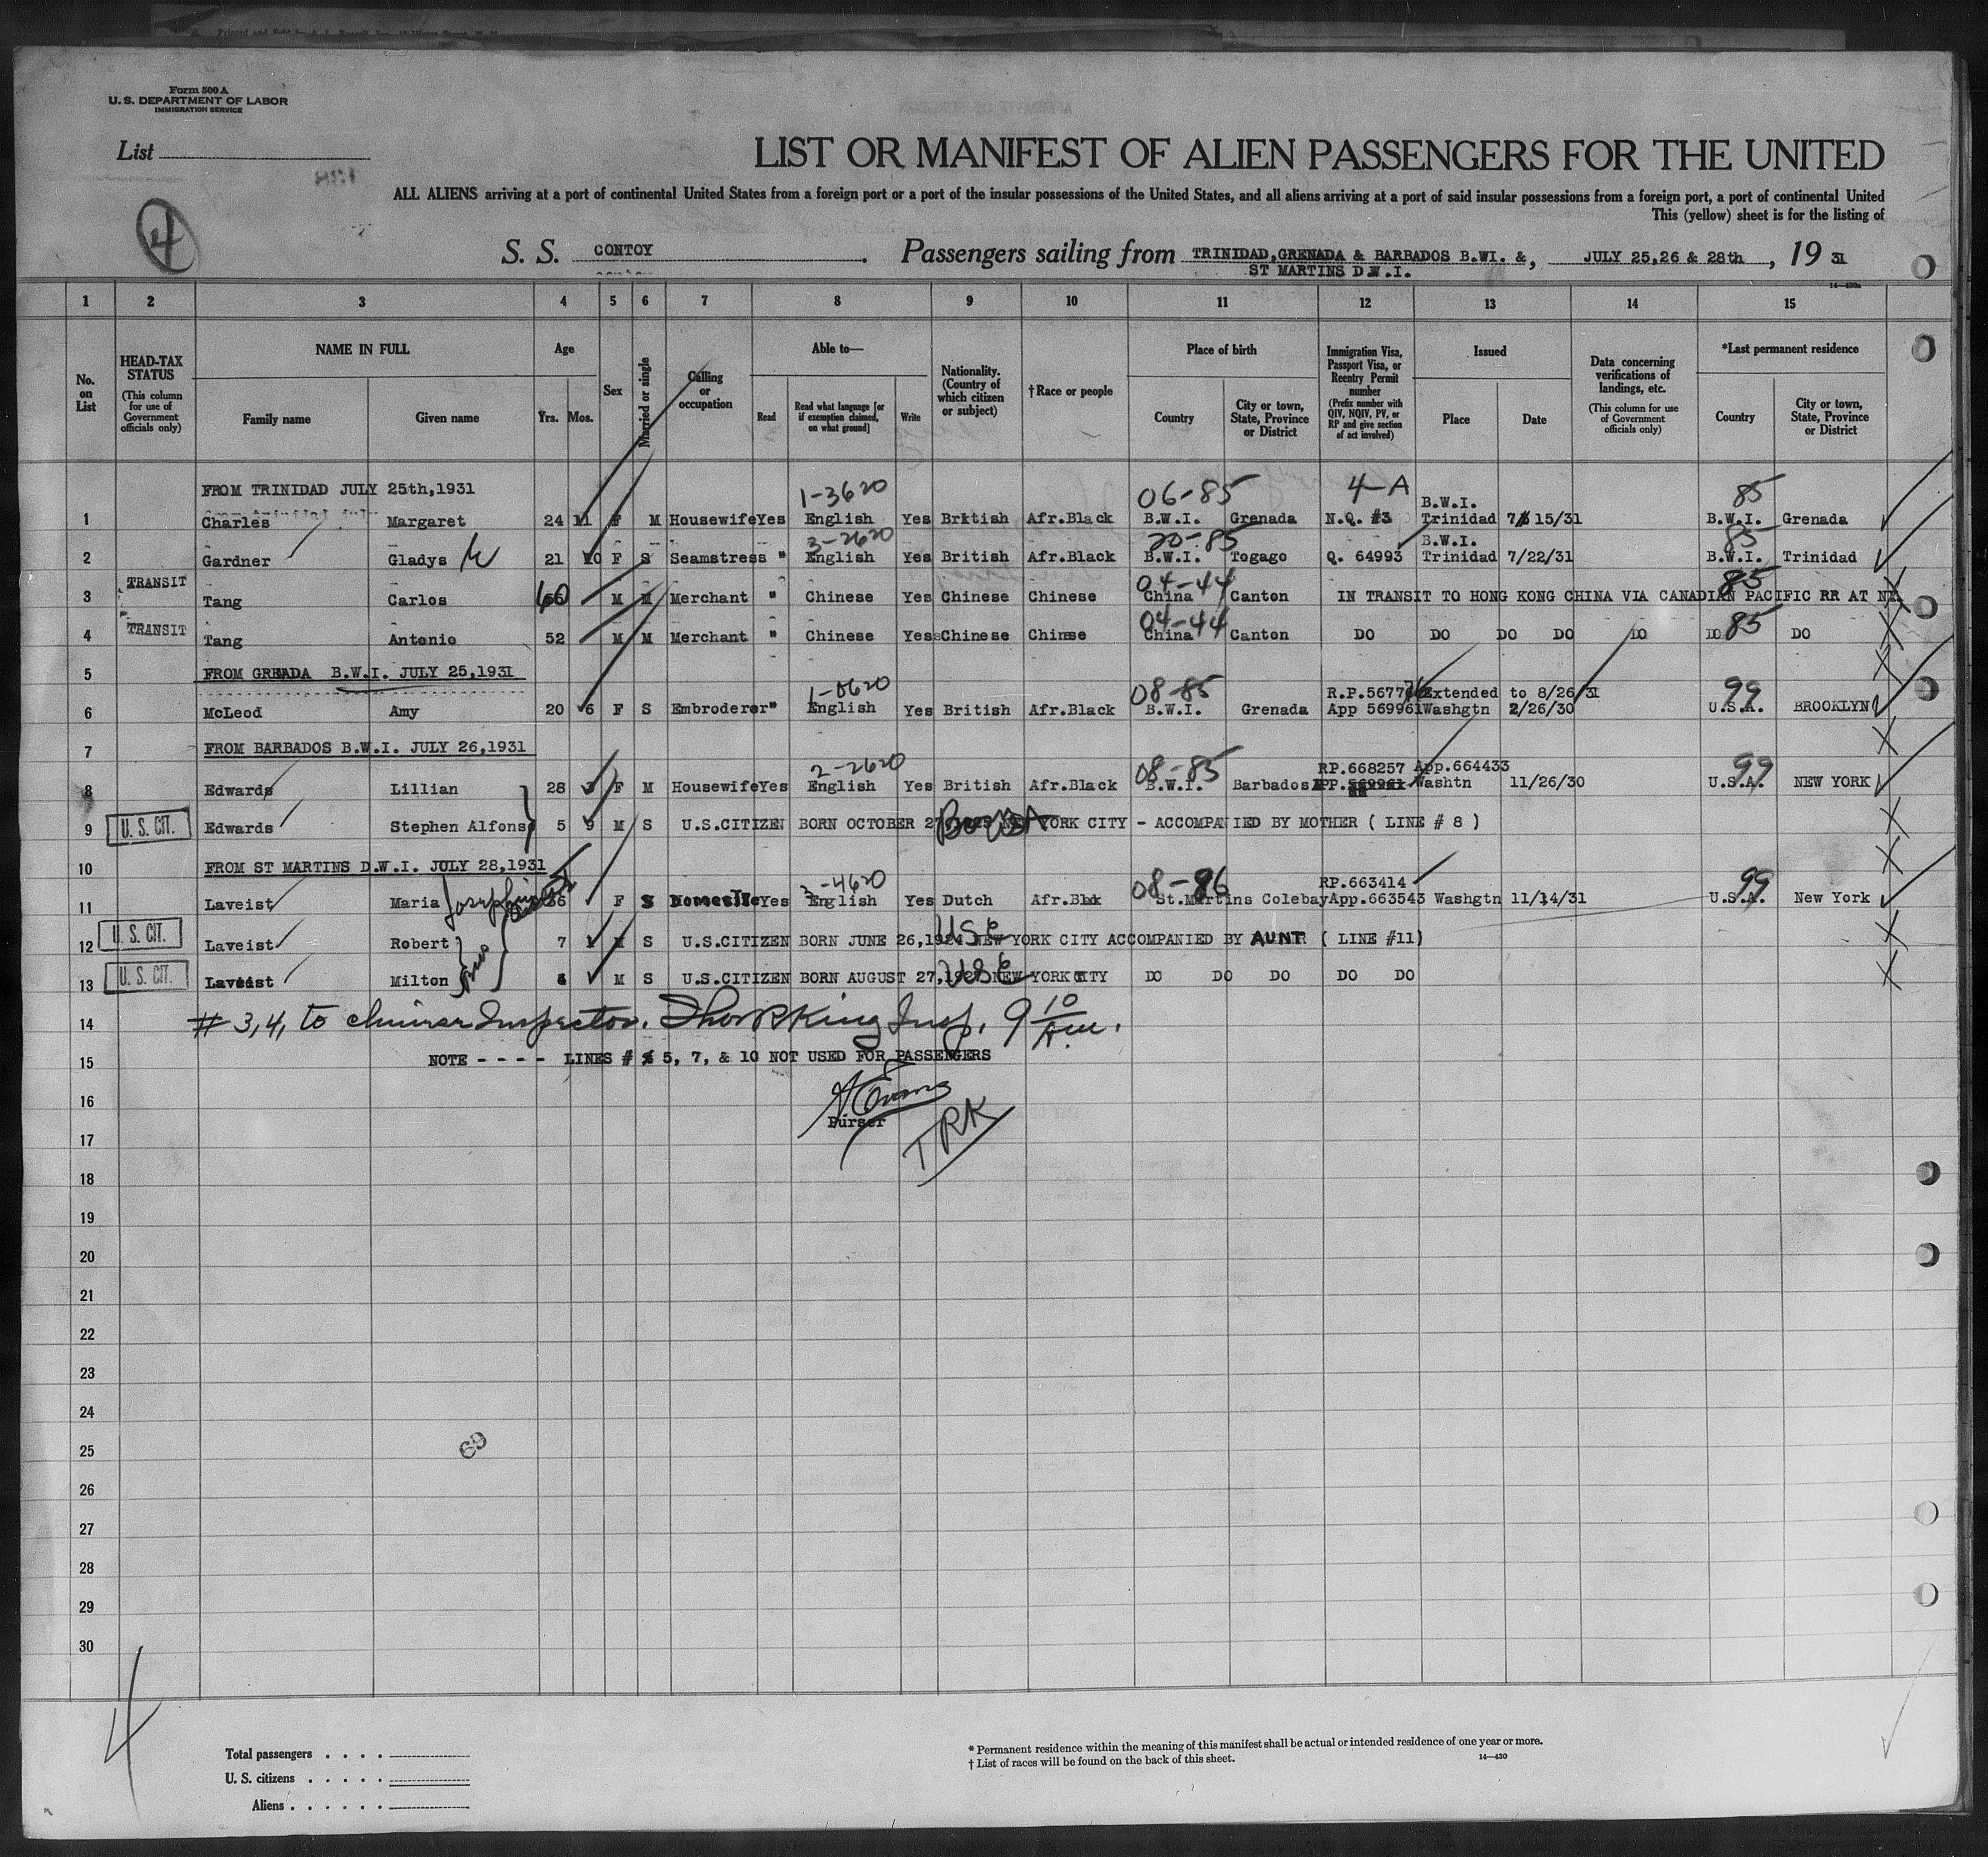 Form 500 A
U. S. DEPARTMENT OF LABOR
IMMIGRATION SERVICE
List
4
LIST OR MANIFEST OF ALIEN PASSENGERS FOR THE UNITED
ALL ALIENS arriving at a port of continental United States from a foreign port or a port of the insular possessions of the United States, and all aliens arriving at a port of said insular possessions from a foreign port, a port of continental United
This (yellow) sheet is for the listing of
S. S. CONTOY. Passengers sailing from TRINIDAD, GRENADA & BARBADOS B.WI. &, JULY 25,26 & 28th, 19 31
ST MARTINS D.W.I.
14-430a
1 2 3 4 5 6 7 8 9 10 11 12 13 14 15
No. on List
HEAD-TAX STATUS (This column for use of Government officials only)
NAME IN FULL Family name Given name
Age Yrs. Mos.
Sex
Married or single
Calling or occupation
Able to— Read Read what language [or if exemption claimed, on what ground] Write
Nationality. (Country of which citizen or subject)
†Race or people
Place of birth Country City or town, State, Province or District
Immigration Visa, Passport Visa, or Reentry Permit number (Prefix number with QIV, NQIV, PV, or RP and give section of act involved)
Issued Place Date
Data concerning verifications of landings, etc. (This column for use of Government officials only)
*Last permanent residence Country City or town, State, Province or District
FROM TRINIDAD JULY 25th,1931 1-3620 06-85 4-A B.W.I. 85
1 Charles Margaret 24 11 F M Housewife Yes English Yes British Afr.Black B.W.I. Grenada N.Q. #3 Trinidad 7/15/31 B.W.I. Grenada
3-2620 20-85 B.W.I. 85
2 Gardner Gladys 21 10 F S Seamstress " English Yes British Afr.Black B.W.I. Togago Q. 64993 Trinidad 7/22/31 B.W.I. Trinidad
TRANSIT 04-44 85
3 Tang Carlos 60 M M Merchant " Chinese Yes Chinese Chinese China Canton IN TRANSIT TO HONG KONG CHINA VIA CANADIAN PACIFIC RR AT NY
TRANSIT 04-44 85
4 Tang Antonio 52 M M Merchant " Chinese Yes Chinese Chinese China Canton DO DO DO DO DO DO DO
5 FROM GREADA B.W.I. JULY 25,1931
1-0620 08-85 R.P. Extended to 8/26/31 99
6 McLeod Amy 20 6 F S Embroderer " English Yes British Afr.Black B.W.I. Grenada App 569961 Washgtn 2/26/30 U.S.A. BROOKLYN
7 FROM BARBADOS B.W.I. JULY 26,1931
2-2620 08-85 RP.668257 App.664433 99
8 Edwards Lillian 28 3 F M Housewife Yes English Yes British Afr.Black B.W.I. Barbados APP. 569961 Washtn 11/26/30 U.S.A. NEW YORK
9 U. S. CIT. Edwards Stephen Alfons 5 9 M S U.S.CITIZEN BORN OCTOBER 27 YORK CITY - ACCOMPANIED BY MOTHER ( LINE # 8 )
10 FROM ST MARTINS D.W.I. JULY 28,1931
Josephine 3-4620 08-86 RP.663414 99
11 Laveist Maria 36 F S Yes English Yes Dutch Afr.Blk St.Martins Colebay App.663543 Washgtn 11/14/31 U.S.A. New York
12 U. S. CIT. Laveist Robert 7 1 M S U.S.CITIZEN BORN JUNE 26,1924 USC NEW YORK CITY ACCOMPANIED BY AUNT ( LINE #11)
13 U. S. CIT. Laveist Milton M S U.S.CITIZEN BORN AUGUST 27, USC NEW YORK CITY DO DO DO DO DO
14 # 3,4, to chinese Inspector. Thor R King Insp. 9 10/A.m.
15 NOTE - - - - LINES # 5, 7, & 10 NOT USED FOR PASSENGERS
16 A Evans
Purser
17 TRK
18
19
20
21
22
23
24
25 69
26
27
28
29
30
4
Total passengers . . . .
U. S. citizens . . . . .
Aliens . . . . . .
* Permanent residence within the meaning of this manifest shall be actual or intended residence of one year or more.
† List of races will be found on the back of this sheet. 14—430